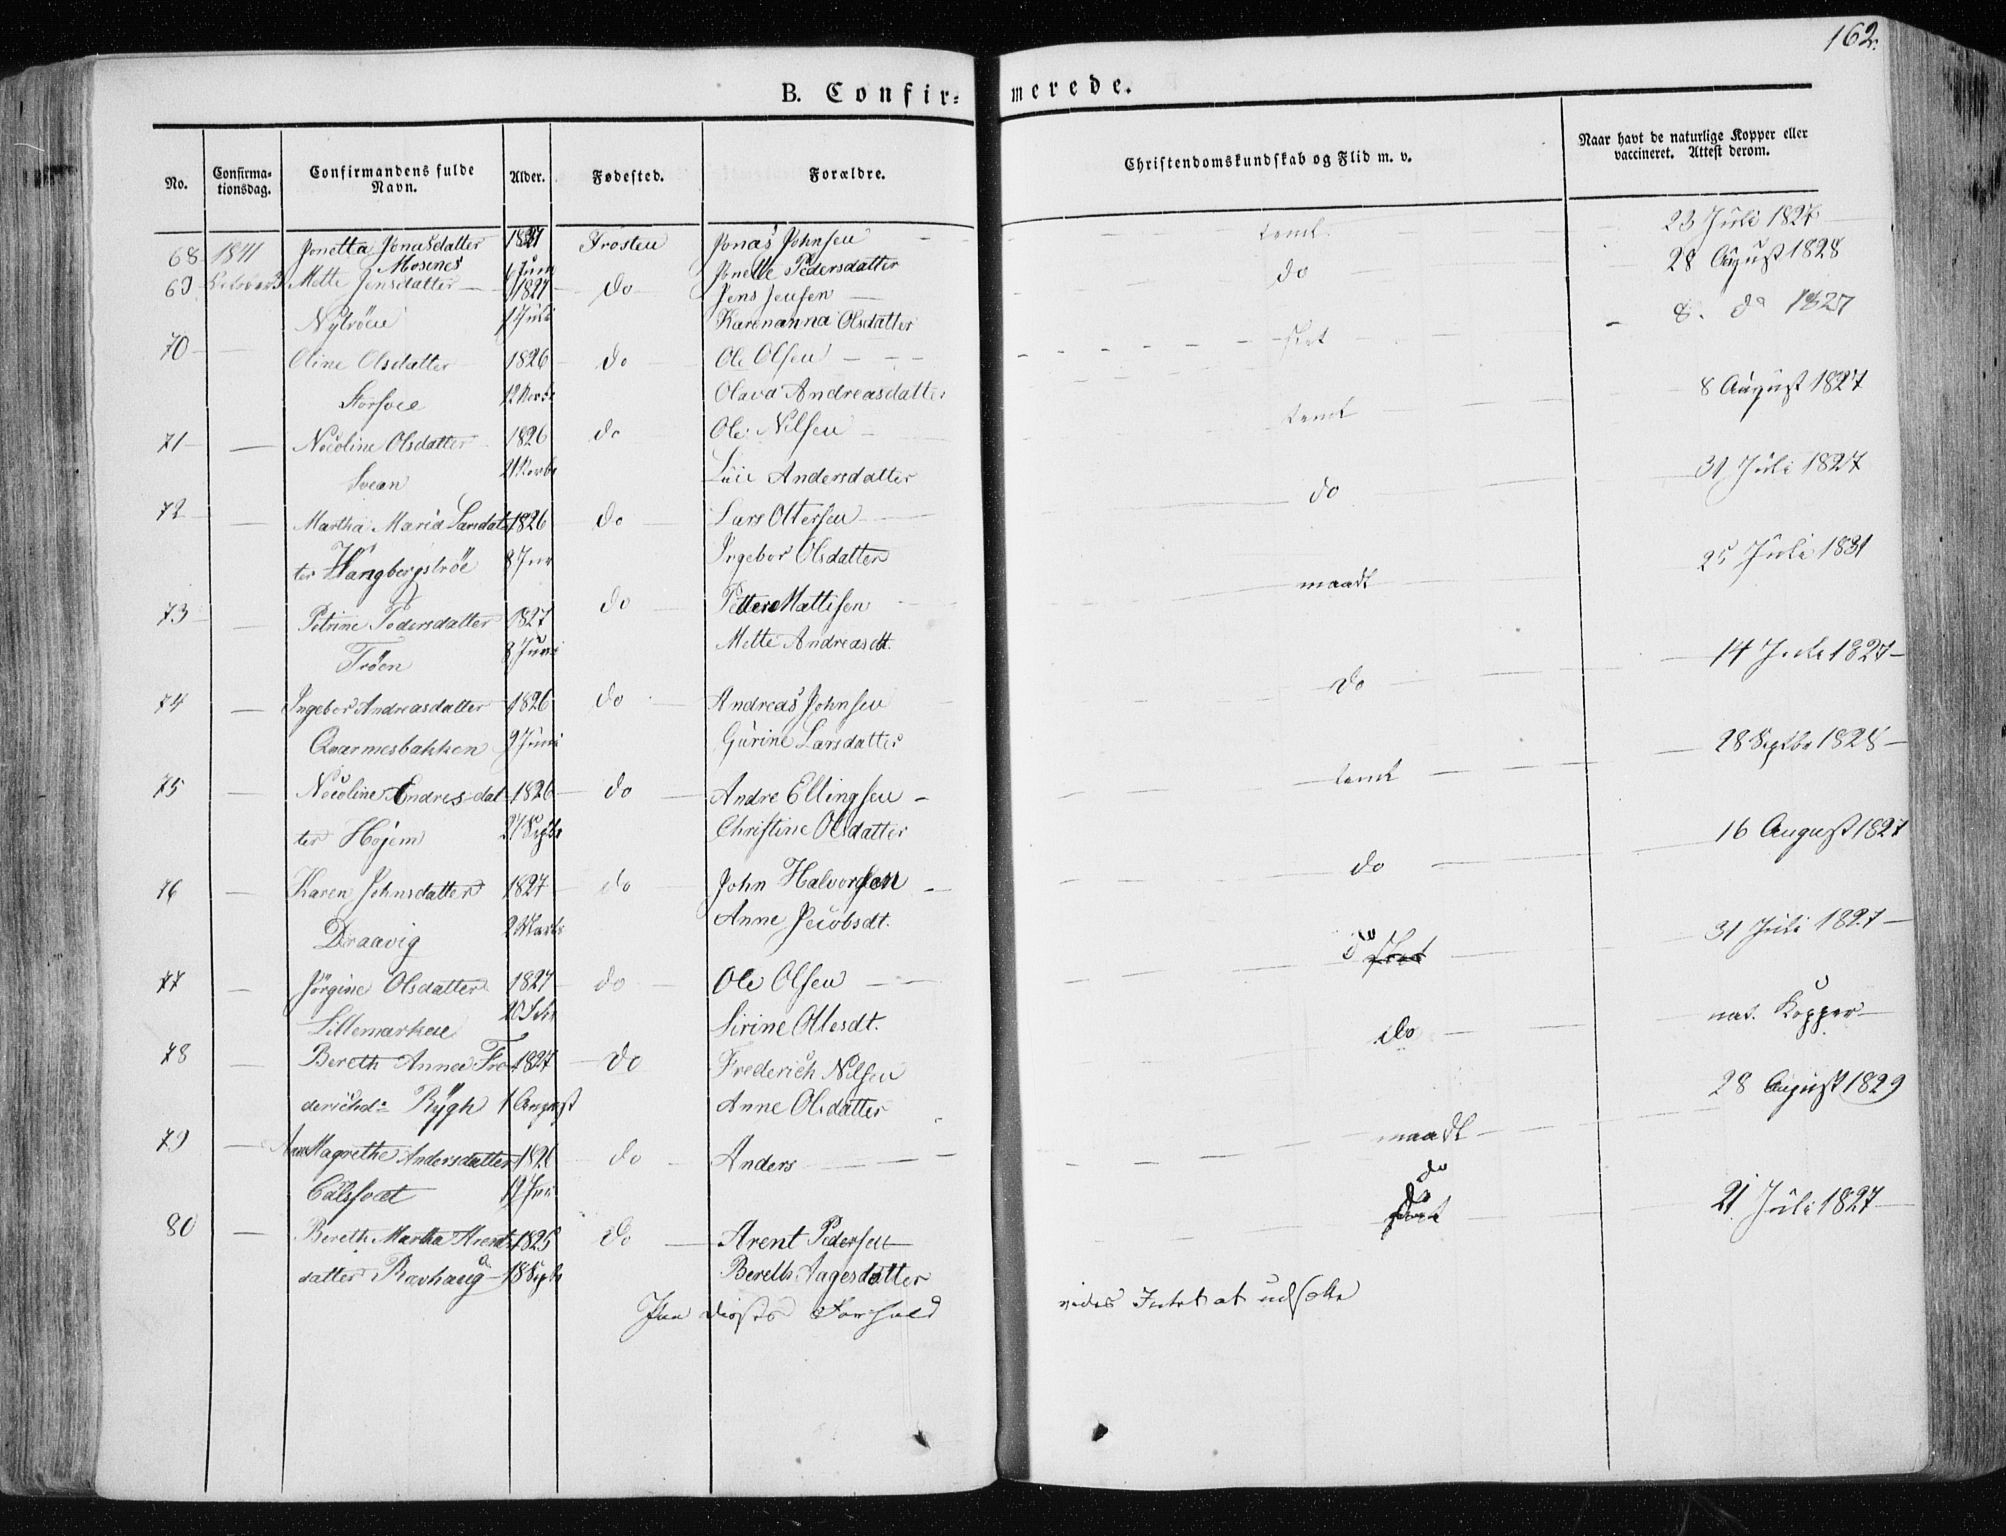 162.
B. Confir= merede.
No. Confirma-tionsdag. Confirmandens fulde Navn. Alder. Fødested. Forældre. Christendomskundskab og Flid m. v. Naar havt de naturlige Kopper eller vaccineret. Attest derom.
68 1841 Jonetta Jonasdatter 1827 Frosten Jonas Johnsen 23 Juli 1827
Mosenes 6 Juni Jonette Pedersdatter
69 Mette Jensdatter 1827 do Jens Jensen do 28 August 1828
Nytröen 1 Juli Karenanna Olsdatter
70 Oline Olsdatter 1826 do Ole Olsen 8. do 1827
12 Novbr Olava Andreasdatter
71 Nicoline Olsdatter 1826 do Ole Nilsen 8 August 1827
Svean 21 Novbr Andersdatter
72 Martha Maria Larsdat 1826 do Lars Ottersen do 31 Juli 1827
ter Hangbergströe 8 Jun Ingebor Olsdatter
73 Petrine Pedersdatter 1827 do Petter Mattisen maadl 25 Juli 1831
Tröen 8 Juni Mette Andreasdt.
74 Ingebor Andreasdatter 1826 do Andreas Johnsen do 14 Juli 1827
Qvarmesbakken 9 Juni Gurine Larsdatter
75 Nicoline Andres-dat 1826 do Andre Ellingsen 28 Septbr 1828
ter Hojem 27 Septbr Christine Olsdatter
76 Karen Johnsdatter 1827 do John Halvorsen do 16 August 1827
Draavig 2 Marts Anne Jacobsdt.
77 Jörgine Olsdatter 1827 do Ole Olsen do 31 Juli 1827
Lillemarken Sirine Ottesdt.
78 Bereth Anna Fre 1827 do Frederich Nilsen do nat. Kopper
derichd: Rygh 1 August Anne Olsdatter
79 Ann Magrethe Andersdatter do Anders maadl 28 August 1829
80 Bereth Martha Arent 1825 do Arent Pedersen do 21 Juli 1827
datter Ravhaug 18 Septbr Bereth Aagesdatter
Forhold vides Intet at udsætte